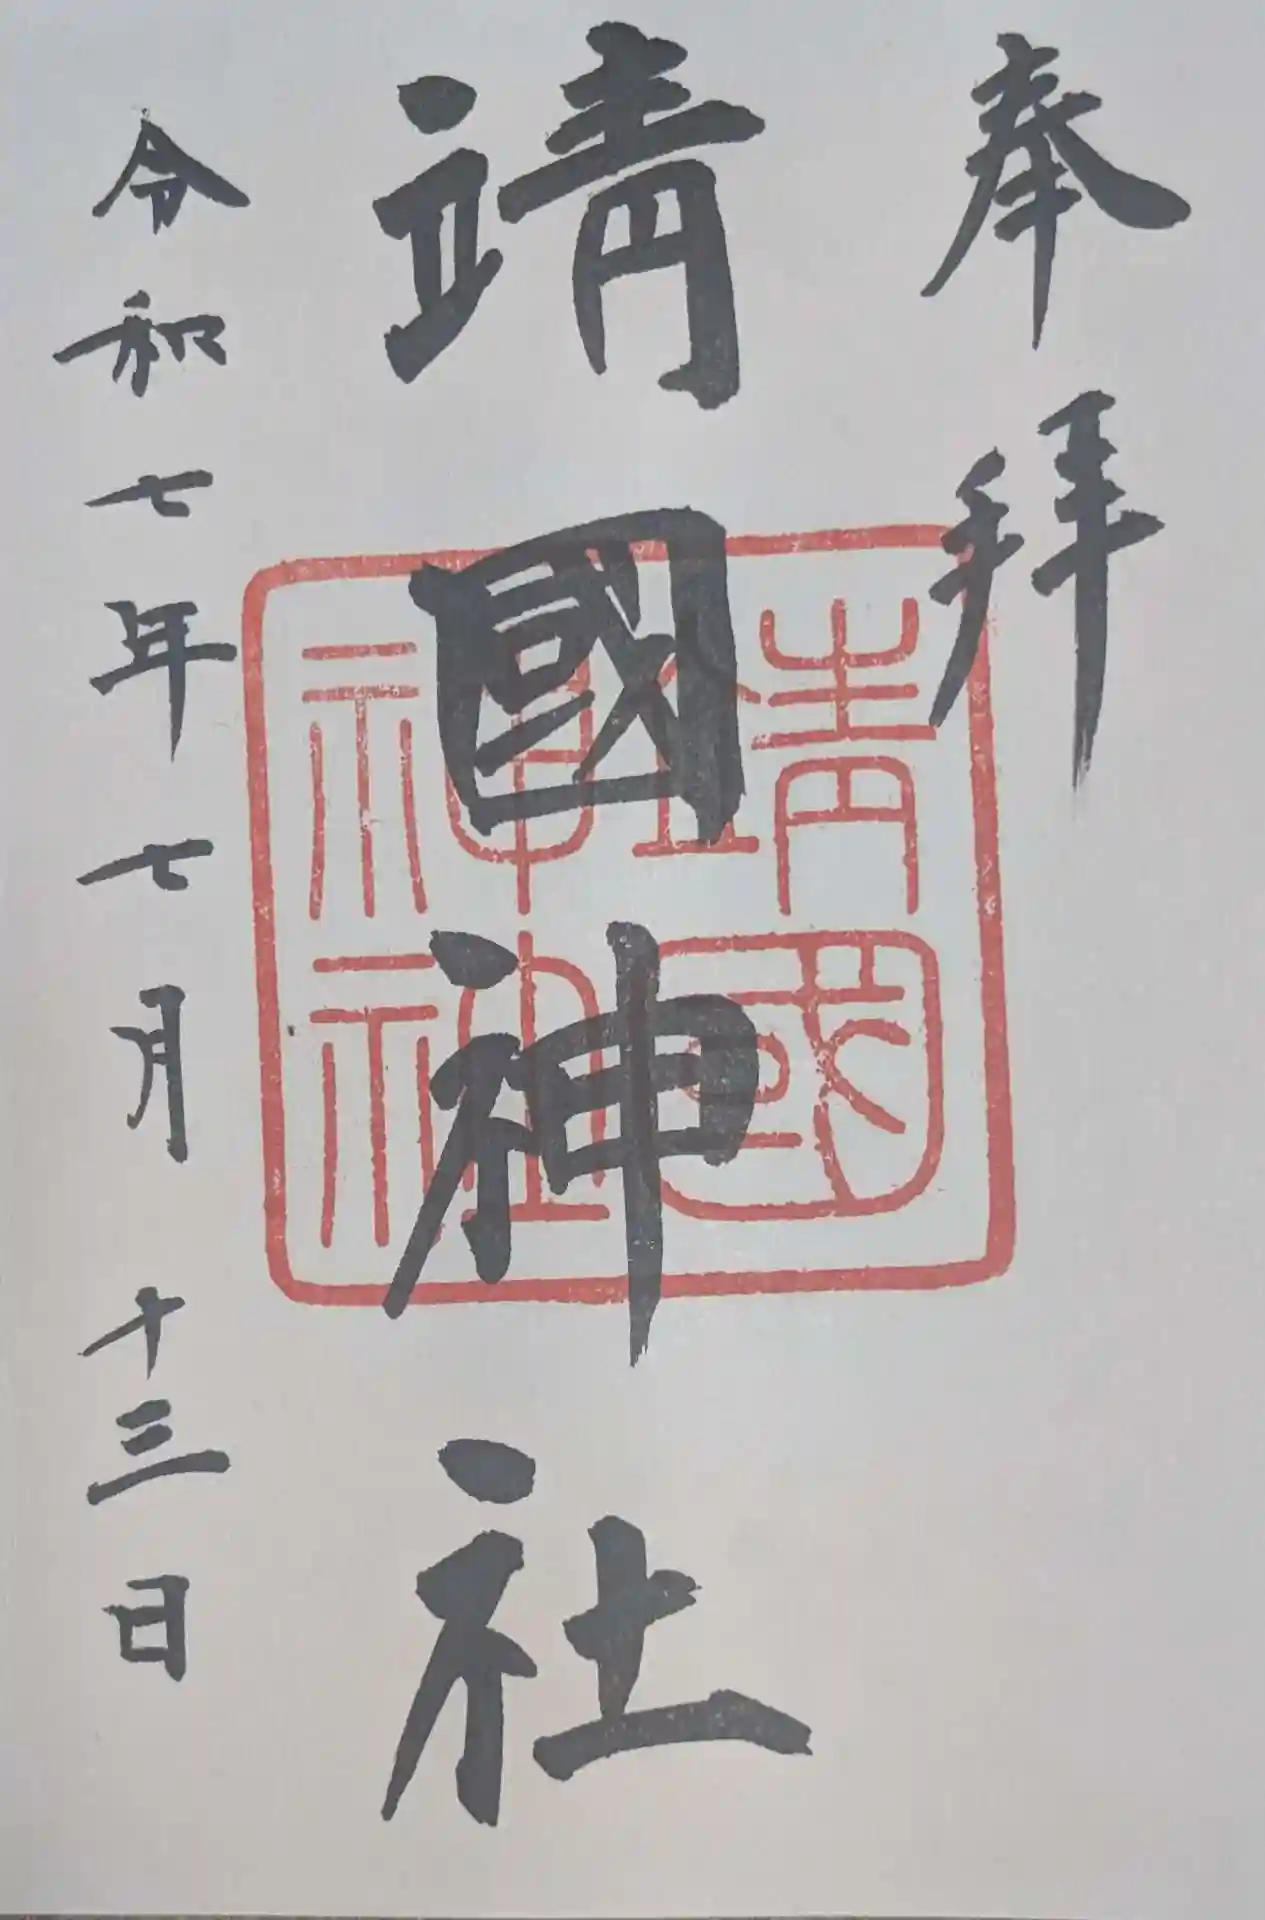 奉拝
靖國神社
靖國
神社
令和七年七月十三日